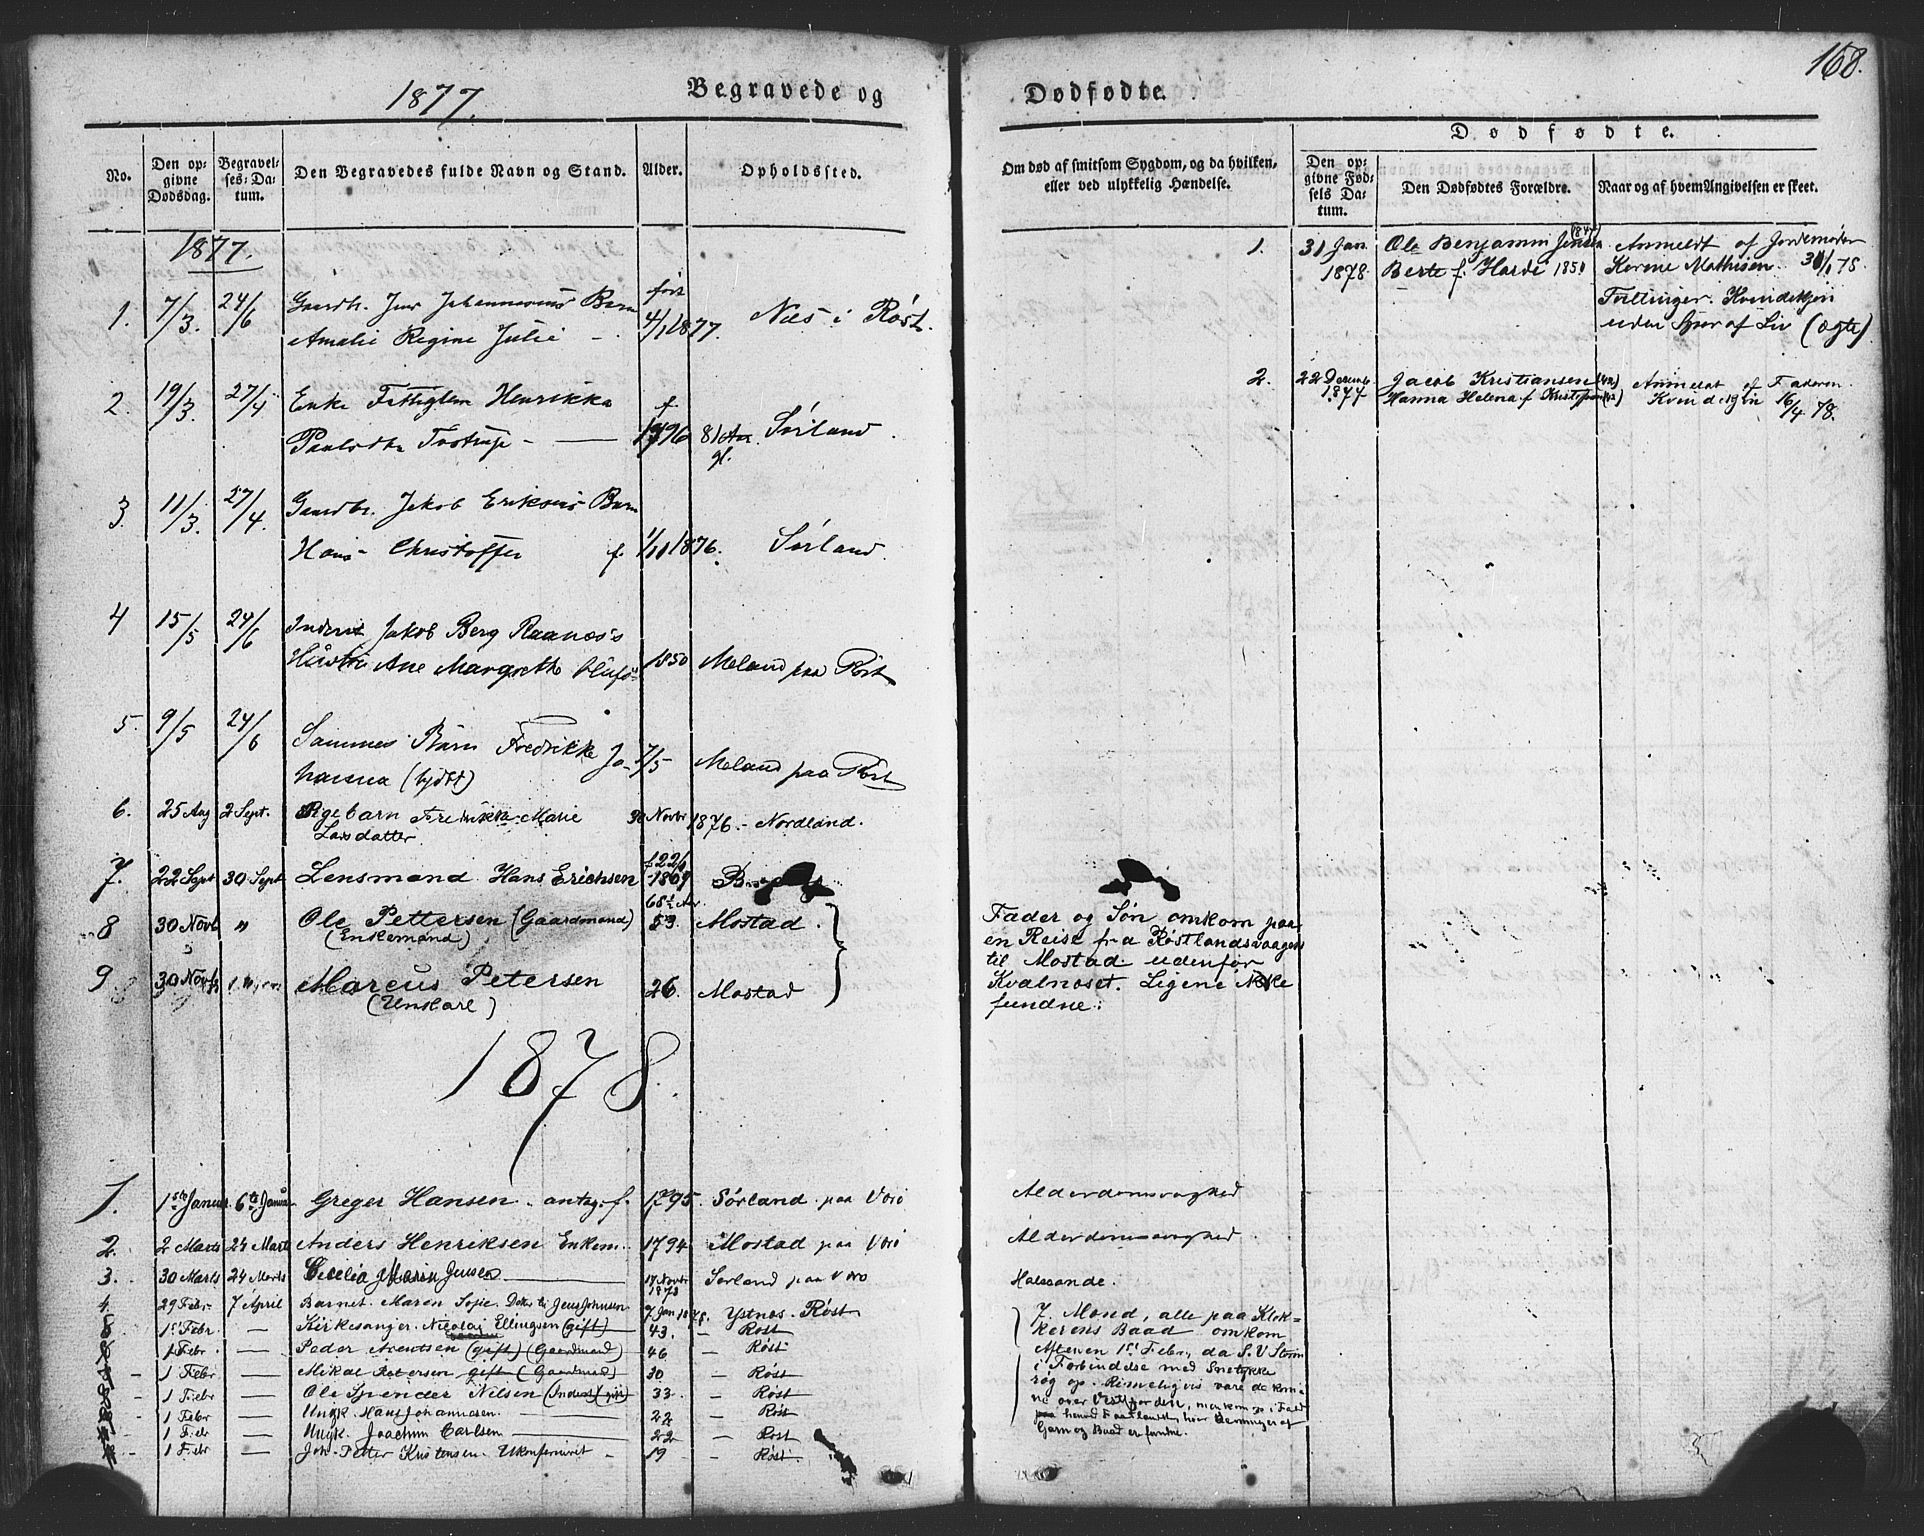 168.
1877.
Begravede og
Dødfødte.
Dødfødte.
No.
Den op-
givne
Dødsdag.
Begravel-
ses-Da-
tum.
Den Begravedes fulde Navn og Stand.
Alder.
Opholdssted.
Om død af smitsom Sygdom, og da hvilken,
eller ved ulykkelig Hændelse.
Den op-
givne Fød-
sels Da-
tum.
Den Dødfødtes Forældre.
Naar og af hvem Angivelsen er skeet.
1877.
1. 7/3. 24/6 Gaardbr. Barn født
Amalie Regine Julie - 4/1 1877. Næs i Røst.
2. 19/3. 27/4 Enke Henrikka f
Tostrup - 1796 81 Aar gl. Sørland
3. 11/3. 27/4. Gaardbr. Jakob Eriksens Barn
Hans Christoffer f. 1876. Sørland.
4 15/5 24/6 Inderst Jakob Berg Raanæs's
Hustru Ane Margrethe Olufs- 1850 Meland paa Røst
5. 9/5 24/6 Sammes Barn Fredrikke Jo- 7/5 Meland paa Røst
hanna (hjdbt)
6. 25 Aug 2 Sept. Pigebarn Fredrikke Marie 30 Novbr 1876. - Nordland.
Larsdatter.
7. 22 Sept 30 Sept Lensmand Hans Erichsen 1809
68½ Aar
8 30 Novb " Ole Pettersen (Gaardmand) 53. Mostad.
(Enkemand)
9 30 Novb Marcus Petersen 26. Mostad
(Unskarl)
Fader og Søn omkom paa
en Reise fra Røstlandsvaagen
til Mostad udenfor
Kvalnæset. Ligene ikke
fundne.
1. 31 Jan. Ole Benjamin Jensen Anmeldt af Jordemoder
1878 Berte f. Harde 1851 Karine Mathisen 78.
Tvillinger. Kvindekjøn
uden Spor af Liv (ægte)
2. 22 Decemb Jacob Kristiansen Anmeldt af Faderen
1877 Hanna Helena f Kvindekjøn 16/4 78.
1878.
1. 1ste Januar. 6te Januar Greger Hansen. f. 1795. Sørland paa Værø Alderdomssvaghed
2. 2 Marts 24 Marts Anders Henriksen Enkem. 1794. Mostad paa Værø Alderdomssvaghed.
3. 30 Marts 24 Marts Cecelia Maria Jensen 17 Novbr 1878 Sørland paa Værø Halssonde.
4. 29 Febr. 7 April Barnet Maren Sofie. Datter til Jens Johnsen 7 Jan 1878. Ystnes. Røst
1st Febr. — Kirkesanger Nicolai Ellingsen (gift) 43. - Røst
1 Febr. — Peder Arentsen (gift) (Gaardmand) 46 - Røst
1 Febr — Mikal Petersen gift (Gaardmand) 30 - Røst
1 Febr — Ole Nilsen (Inderst) (gift) 33. - Røst
1 Febr — Ungk. Hans Johannesen. 22 - Røst
1 Febr — Ungk. Joachim Carlsen 22 - Røst
1 Febr — Joh. Petter Kristensen. Ukonfirmeret - 19 - Røst.
7 Mand, alle paa Klok-
kerens Baad omkom
Aftenen 1st Febr., da S.V Storm
i Forbindelse med Snetykke
røg op. Rimeligvis vare de kom
ne over Vestfjorden,
Garn og Baad er fundne.